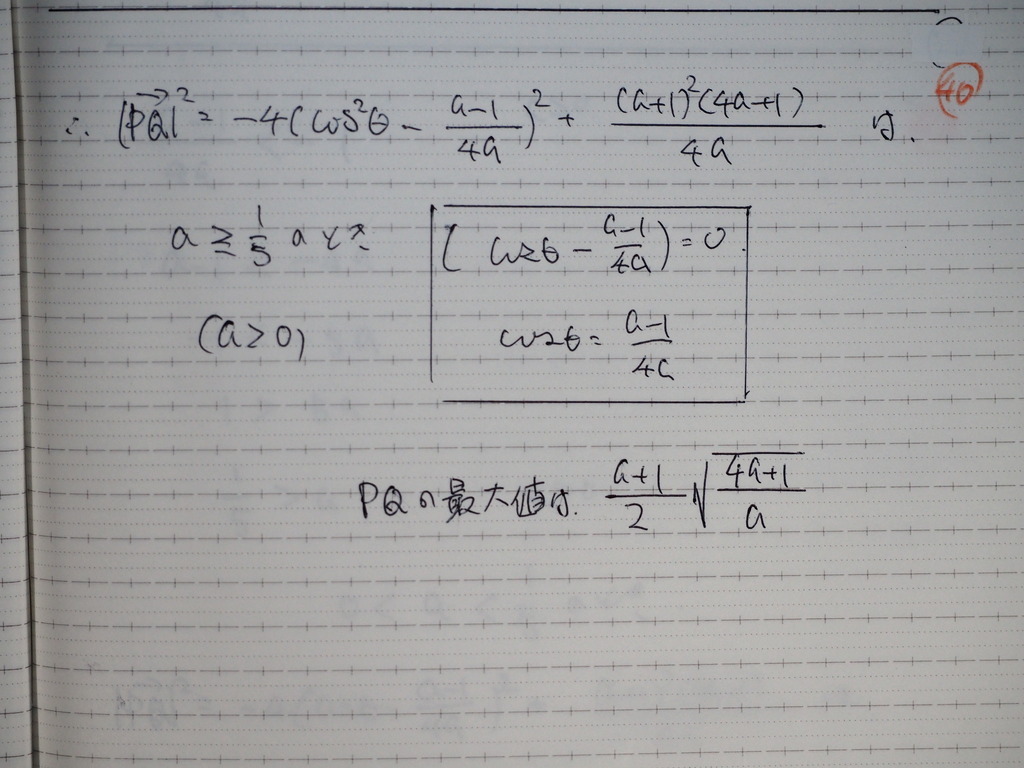 40
∴ |PQ→|² = -4(cos²θ - (a-1)/(4a))² + ((a+1)²(4a+1))/(4a) は.
a ≧ 1/5 のとき
( cosθ - (a-1)/(4a) ) = 0
(a>0)
cosθ = (a-1)/(4a)
PQの最大値は. (a+1)/2 √((4a+1)/a)